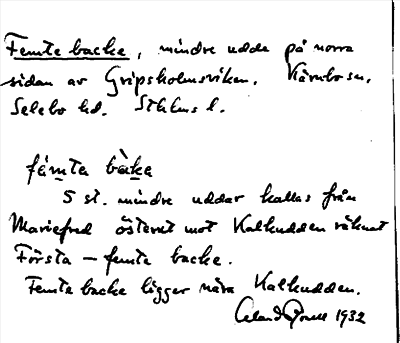 Femte backe, mindre udde på norra
sidan av Gripsholmsviken. Kärnbo sn,
Selebo hd. Sthlms l.
fämta bàke
5 st. mindre uddar kallas från
Mariefred österut mot Kalkudden räknat
Första – femte backe.
Femte backe ligger nära Kalkudden.
1932